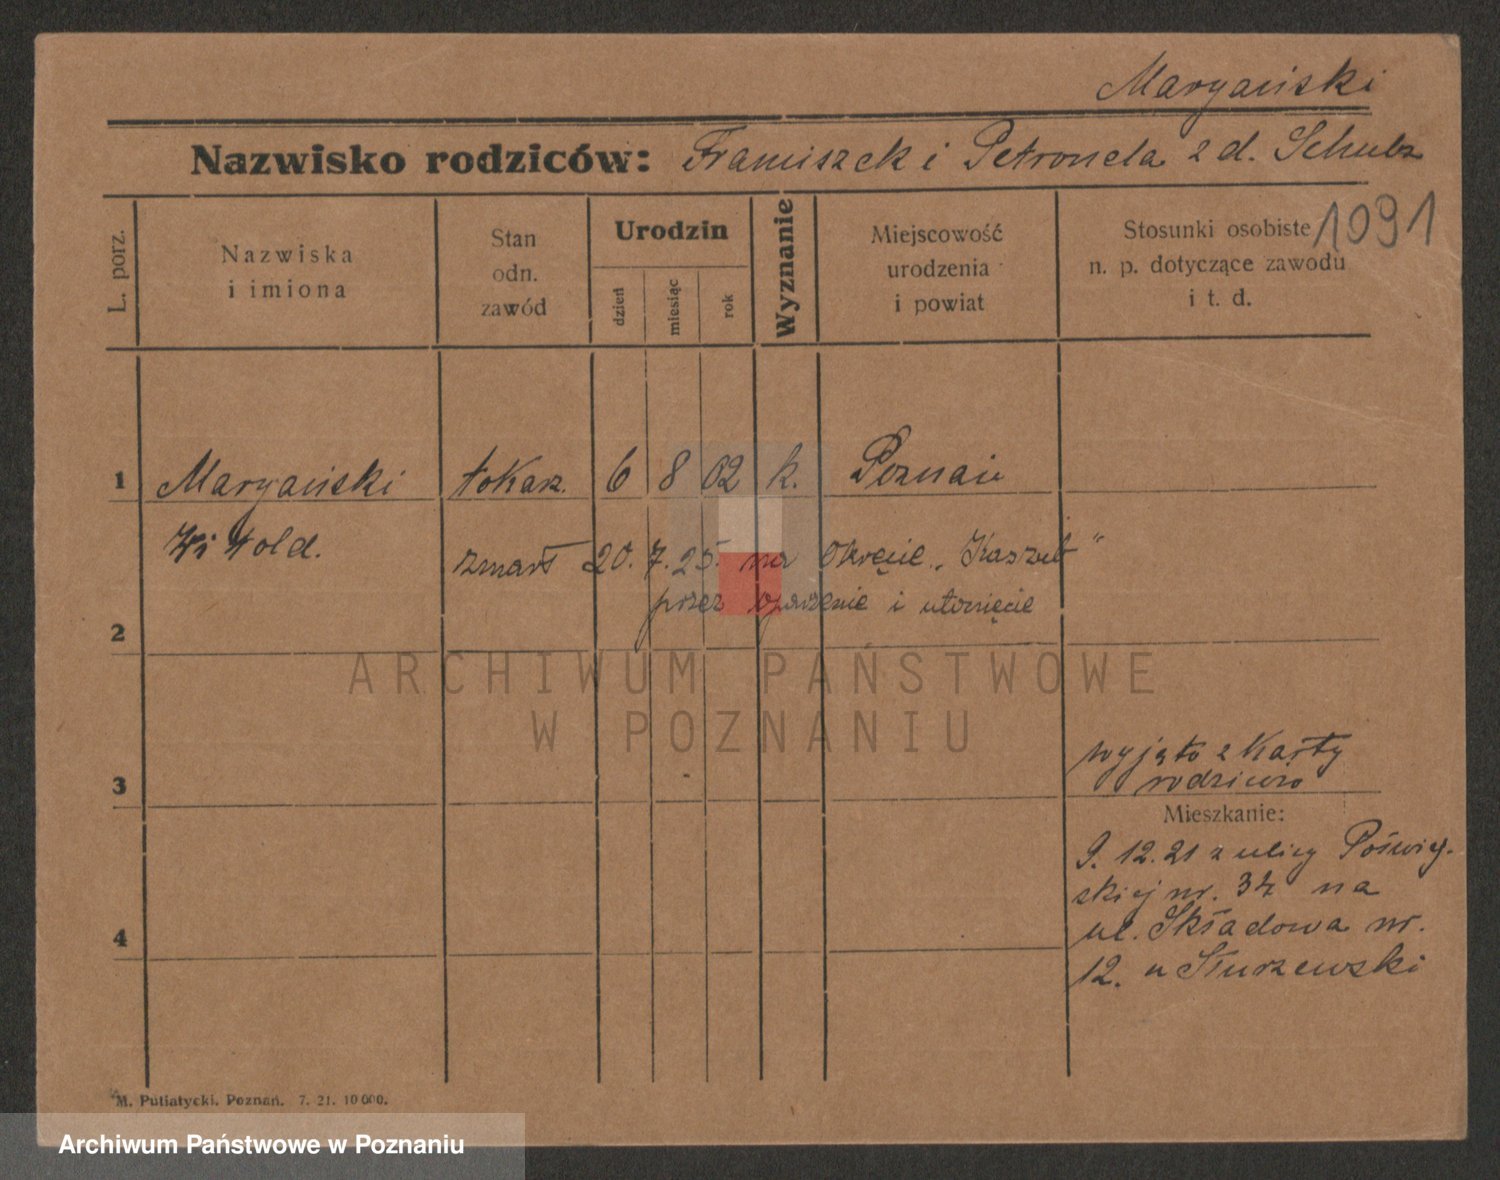 Maryański
Nazwisko rodziców: Franciszek i Petronela z d. Schulz
1091
L. porz.
Nazwiska
i imiona
Stan
odn.
zawód
Urodzin
dzień
miesiąc
rok
Wyznanie
Miejscowość
urodzenia
i powiat
Stosunki osobiste
n. p. dotyczące zawodu
i t. d.
1 Maryański tokarz. 6 8 02 k. Poznań
Witold.
zmarł 20. 7. 25. na Okręcie „Kaszub“
przez oparzenie i utonięcie
2
ARCHIWUM PAŃSTWOWE
W POZNANIU
wyjęto z Karty
rodziców
3
Mieszkanie:
9. 12. 21 z ulicy Poświęt-
skiej nr. 34 na
ul. Składowa nr.
12. u
4
M. Putiatycki. Poznań. 7. 21. 10 000.
Archiwum Państwowe w Poznaniu